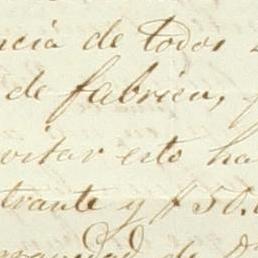 ncia de todos
de fabrica,
vitar esto ha
trante y $ 50.